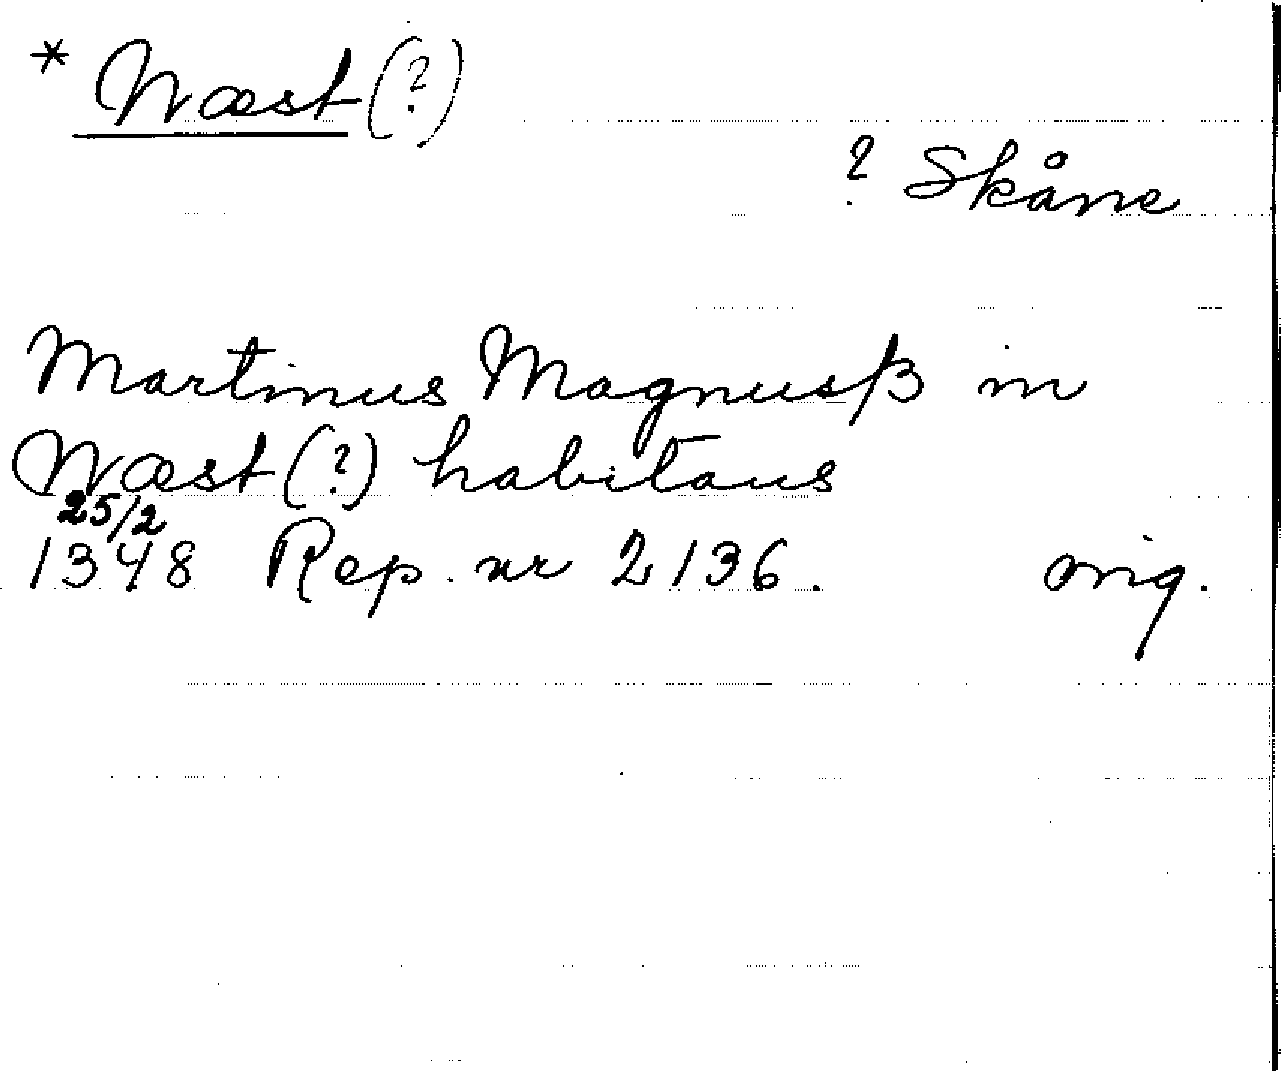 * Wæst (?)
? Skåne
Martinus Magnusß in
Wæst (?) habitans
25/2
1348 Rep. nr 2136. orig.